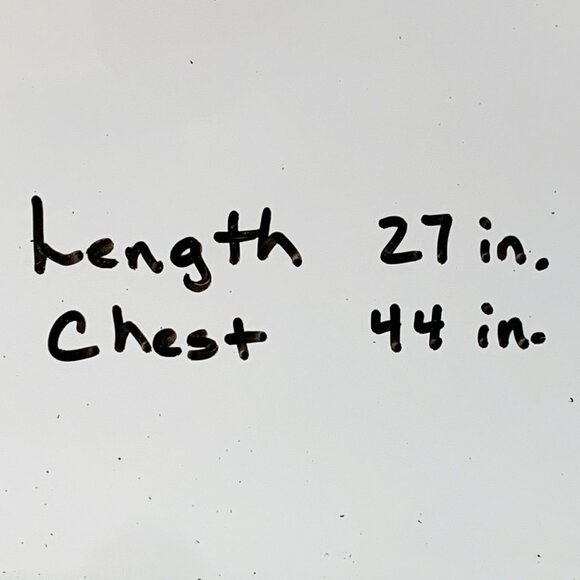 Length 27 in.
Chest 44 in.